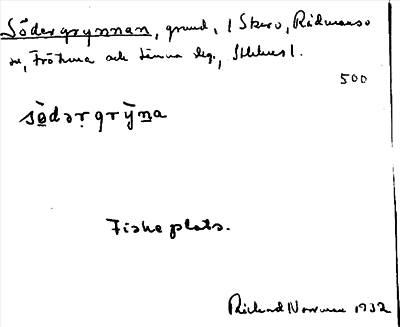 Södergrynnan, grund, i Skevo, Rådmansö
sn, Frötuna och Länna skg., Sthlms l.
500
sö̀dərgrỳna
Fiskeplats.
Rickard Norrman 1932